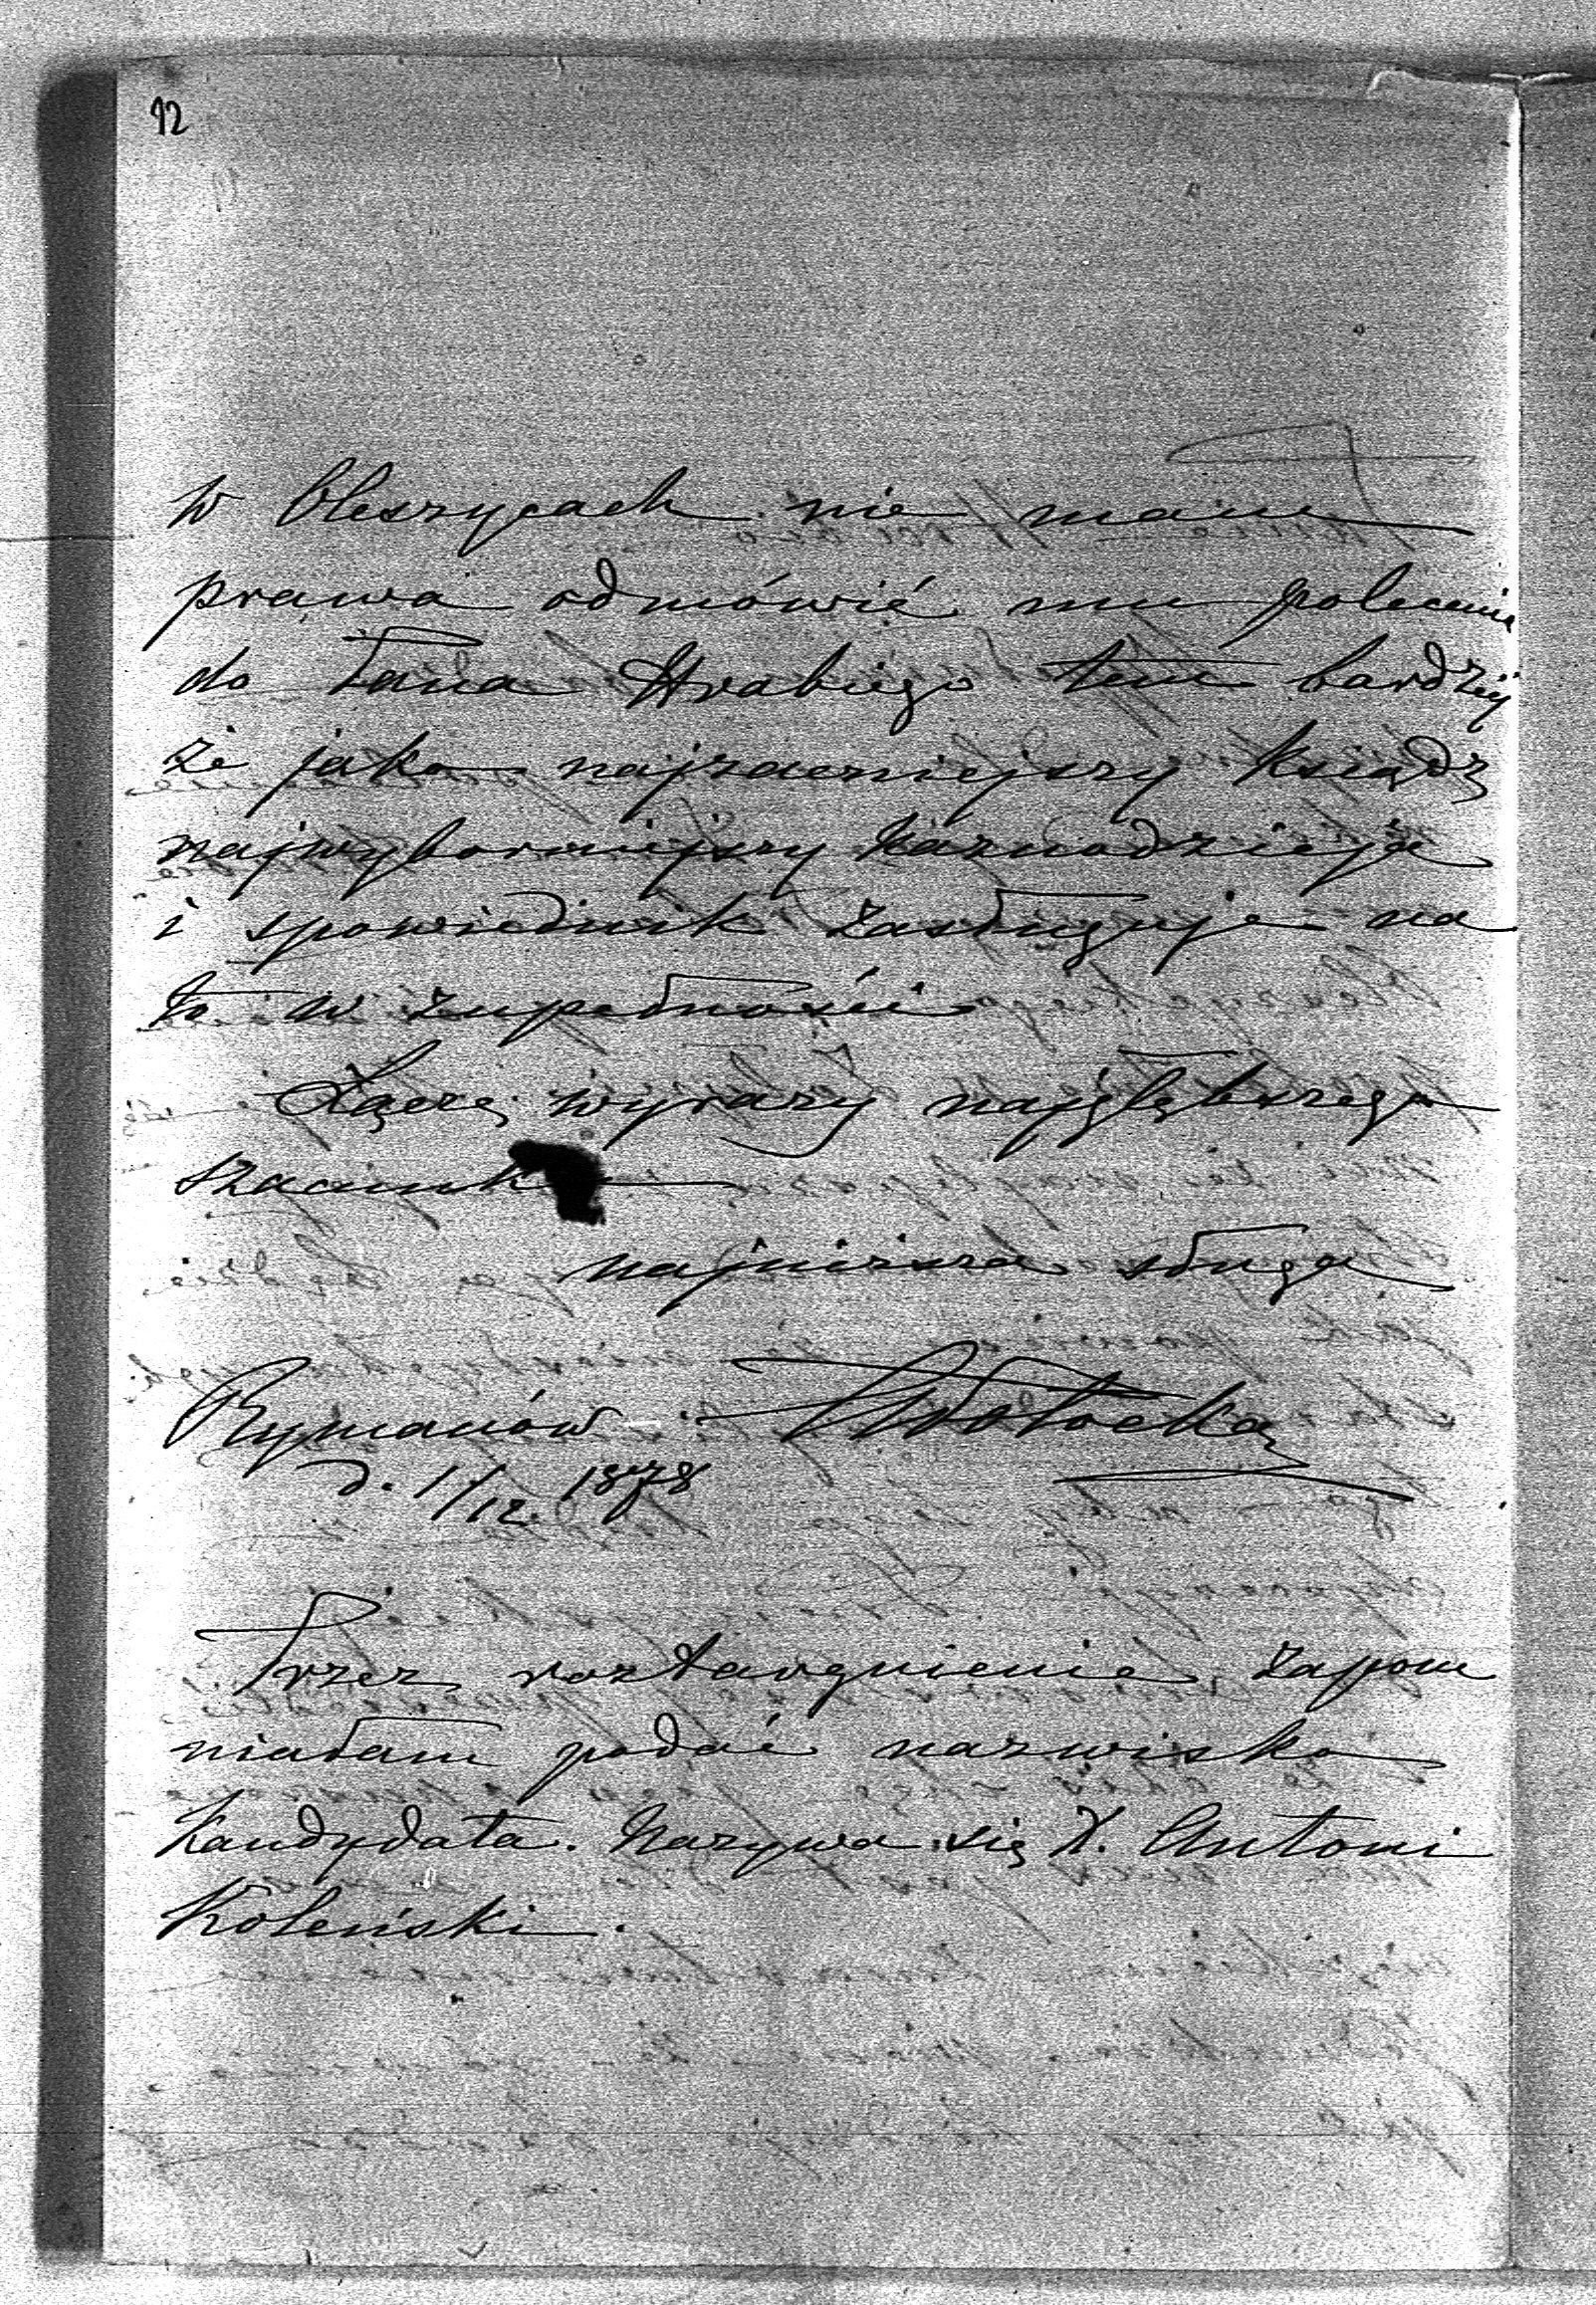 12
w Oleszycach nie mam
prawa odmówić mu polecenia
do Pana Hrabiego tem bardzéj
że jako najzacniejszy ksiądz
najwyborniejszy kaznodzieja
i spowiednik zasługuje na
to w zupełności
Łączę wyrazy najgłębszego
szacunku
najniższa sługa
Rymanów Potocka
d. 1/12. 1878
Przez roztargnienie zapom
niałam podać nazwisko
kandydata. Nazywa się X. Antoni
Koleński.